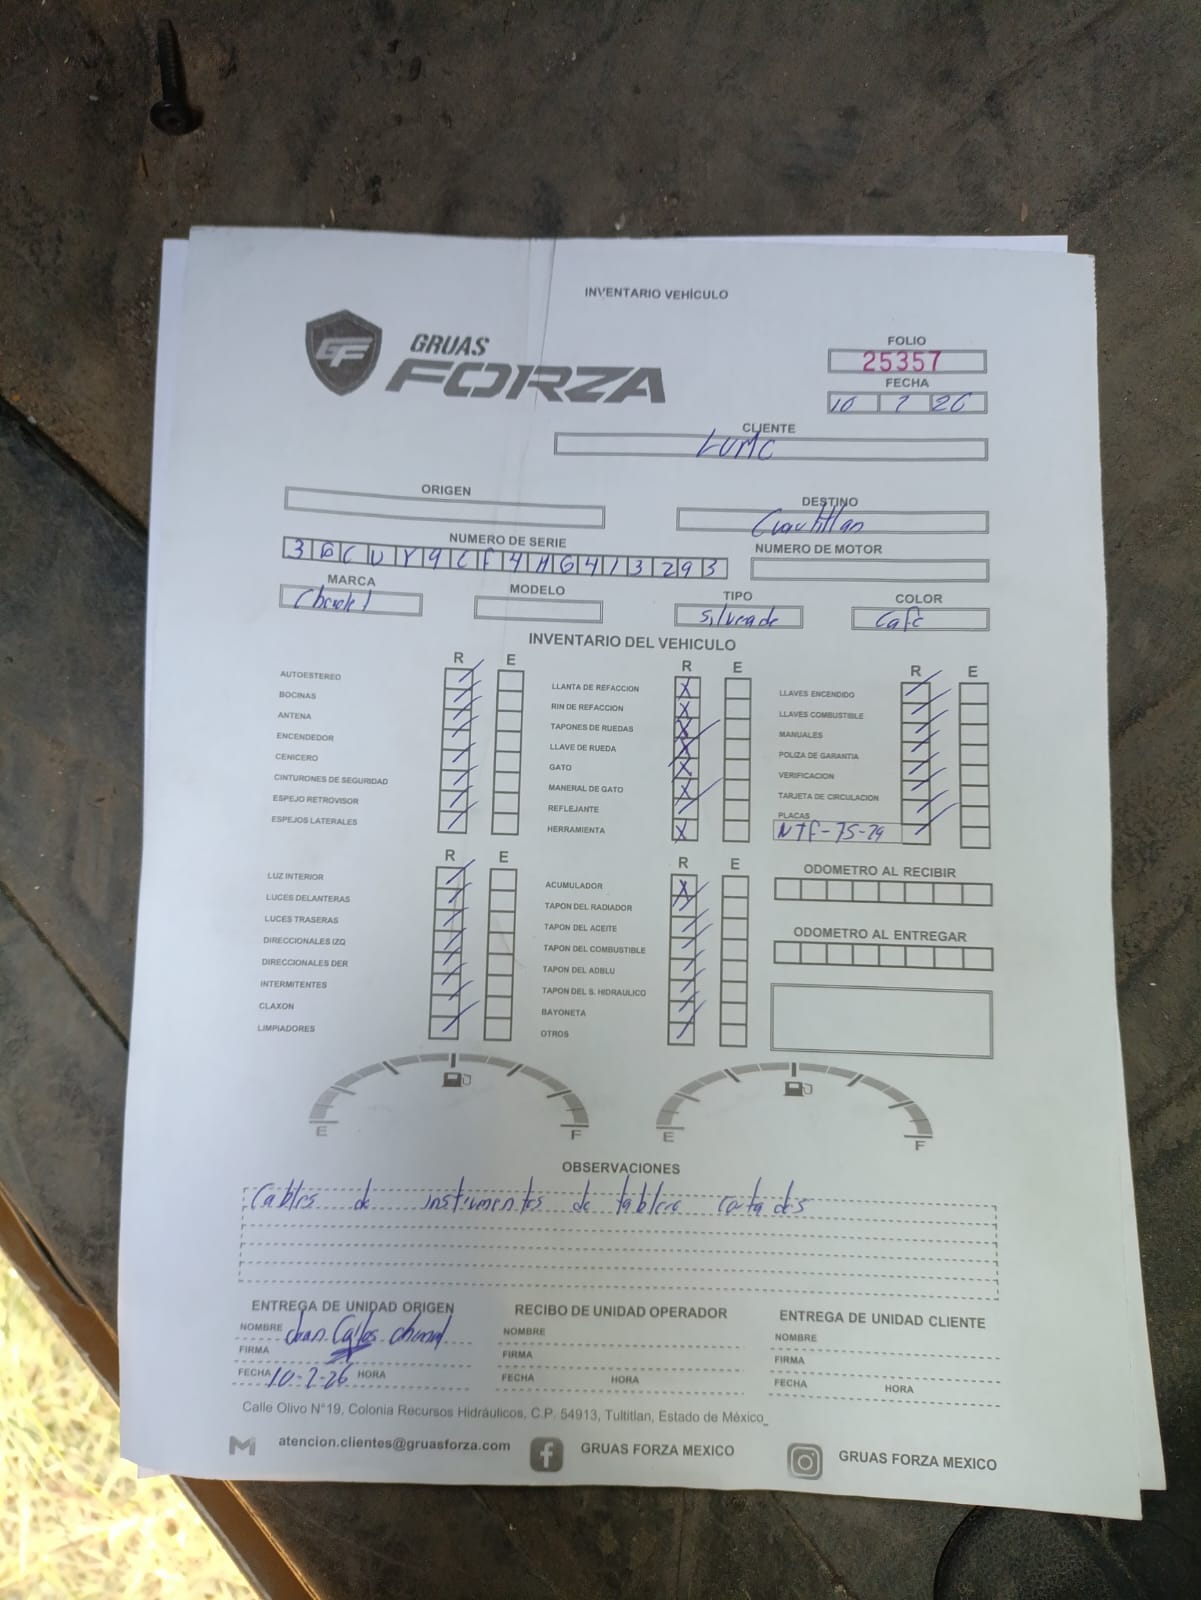 INVENTARIO VEHÍCULO
GF GRUAS FORZA
FOLIO
25357
FECHA
10 2 26
CLIENTE
LUMC
ORIGEN
DESTINO
Cuautitlan
NUMERO DE SERIE
NUMERO DE MOTOR
3GCUY9CF4HG413293
MARCA
MODELO
TIPO
COLOR
Silverade
Cafe
INVENTARIO DEL VEHICULO
R E
AUTOESTEREO
BOCINAS
ANTENA
ENCENDEDOR
CENICERO
CINTURONES DE SEGURIDAD
ESPEJO RETROVISOR
ESPEJOS LATERALES
R E
LLANTA DE REFACCION X
RIN DE REFACCION X
TAPONES DE RUEDAS X
LLAVE DE RUEDA X
GATO X
MANERAL DE GATO X
REFLEJANTE
HERRAMIENTA X
R E
LLAVES ENCENDIDO
LLAVES COMBUSTIBLE
MANUALES
POLIZA DE GARANTIA
VERIFICACION
TARJETA DE CIRCULACION
PLACAS
NTF-75-79
R E
LUZ INTERIOR
LUCES DELANTERAS
LUCES TRASERAS
DIRECCIONALES IZQ
DIRECCIONALES DER
INTERMITENTES
CLAXON
LIMPIADORES
R E
ACUMULADOR X
TAPON DEL RADIADOR
TAPON DEL ACEITE
TAPON DEL COMBUSTIBLE
TAPON DEL ADBLU
TAPON DEL S. HIDRAULICO
BAYONETA
OTROS
ODOMETRO AL RECIBIR
ODOMETRO AL ENTREGAR
E F
E F
OBSERVACIONES
Cables de instrumentos de tablero cortados
ENTREGA DE UNIDAD ORIGEN
NOMBRE Juan Carlos
FIRMA
FECHA 10-2-26 HORA
RECIBO DE UNIDAD OPERADOR
NOMBRE
FIRMA
FECHA HORA
ENTREGA DE UNIDAD CLIENTE
NOMBRE
FIRMA
FECHA HORA
Calle Olivo N°19, Colonia Recursos Hidráulicos, C.P. 54913, Tultitlan, Estado de México_
atencion.clientes@gruasforza.com
GRUAS FORZA MEXICO
GRUAS FORZA MEXICO